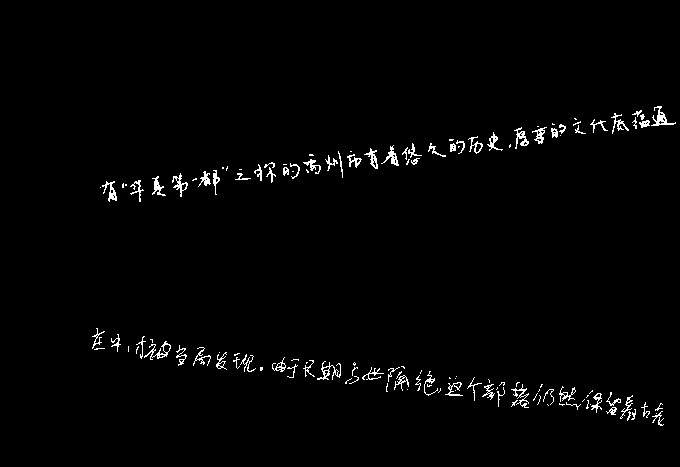 有“华夏第一都”之称的禹州市有着悠久的历史,厚重的文化底蕴通
在半,才被当局发现。由于长期与世隔绝,这个部落仍然保留着古老